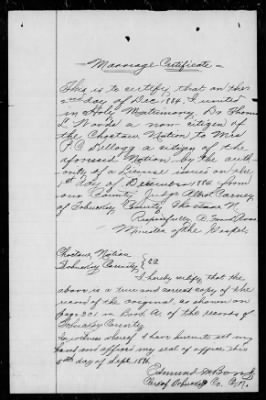 Marriage Certificate
This is to certify that on the
2nd day of Dec 1884 I united
in Holy Matrimony Dr Thomas
Woods a non citizen of
the Choctaw Nation to Mrs
P C Kellogg a citizen of the
aforesaid Nation by the auth-
ority of a License issued on the
1st day of December 1884 from
our County Judge
of Tobucksy County Choctaw N.
Respectfully A.
Minister of the Gospel
Choctaw Nation
Tobucksy County } SS
I hereby certify that the
above is a true and correct copy of the
record of the original, as shown on
page 201 in Book A. of the records of
Tobucksy County
In witness whereof I have hereunto set my
hand and affixed my seal of office, this
5th day of Sept 1896
Edmund
Clerk of Tobucksy Co. C.N.